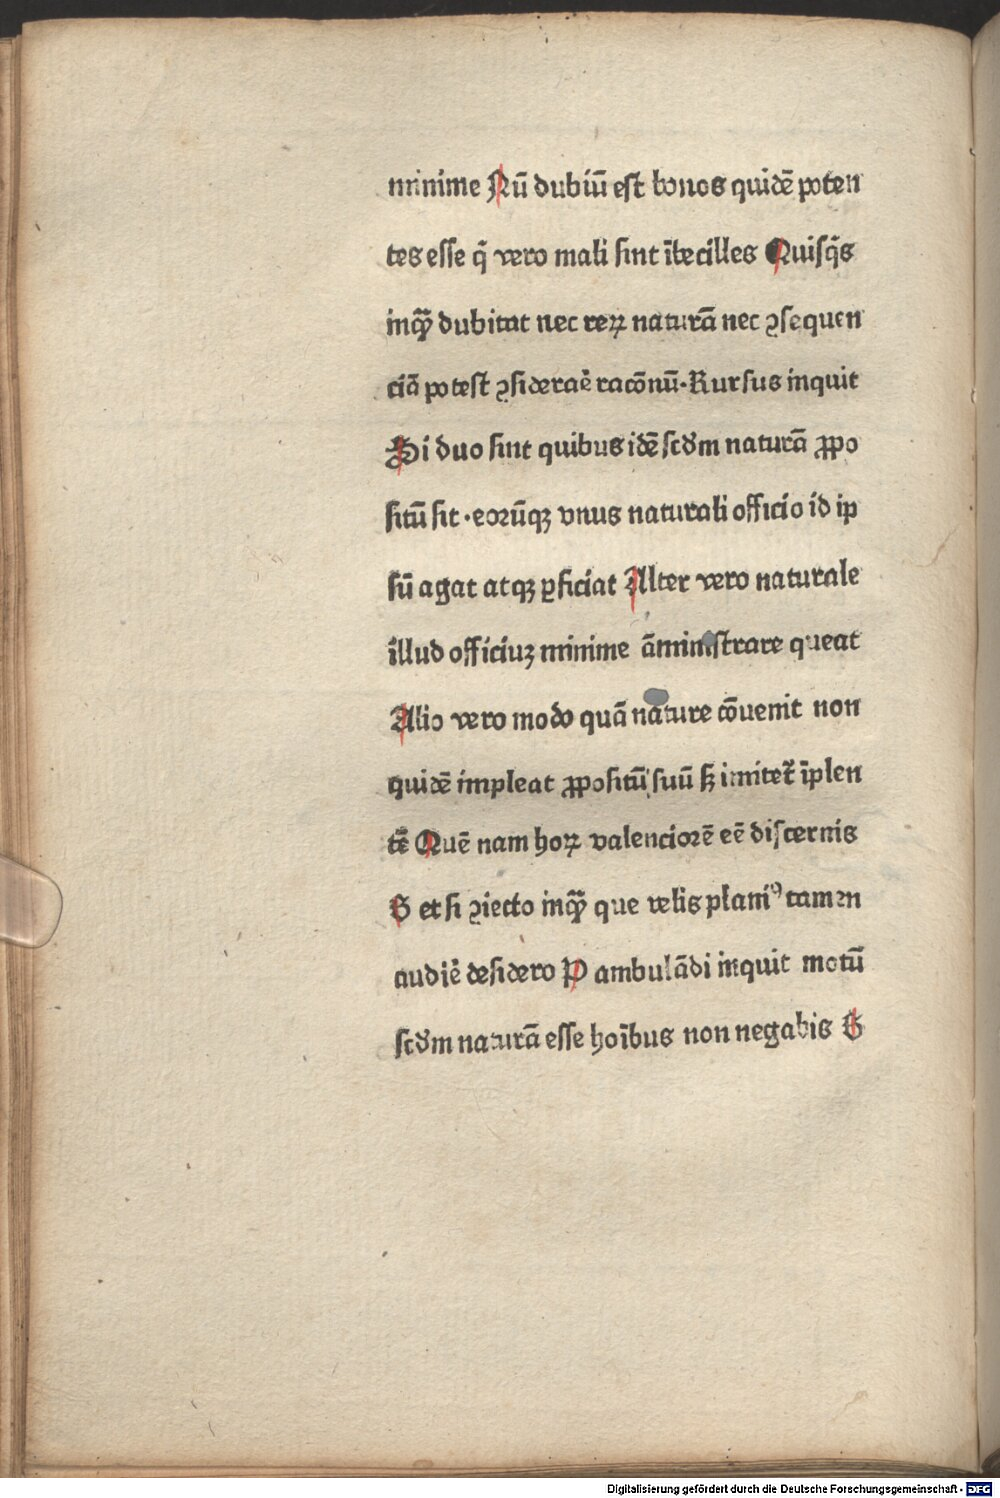 minime Nū dubiū est bonos quidē poten
tes esse q̄ vero mali sint ībecilles Quisq̄s
inqꝫ dubitat nec reꝝ naturā nec ꝯsequen
ciā potest ꝯsideraē racōnū·Rursus inquit
Si duo sint quibus idē scd̄m naturā ꝓpo
sitū sit·eorūqꝫ vnus naturali officio id ip
sū agat atqꝫ ꝑficiat Alter vero naturale
illud officiuꝫ minime āministrare queat
Alio vero modo quā nature cōuenit non
quidē impleat ꝓpositū suū sꝫ imitet᷑ īplen
tē Quē nam hoꝝ valenciorē eē discernis
B et si ꝯiecto inqꝫ que velis planiꝰ tamen
audiē desidero P ambulādi inquit motū
scd̄m naturā esse hoībus non negabis B
Digitalisierung gefördert durch die Deutsche Forschungsgemeinschaft - DFG